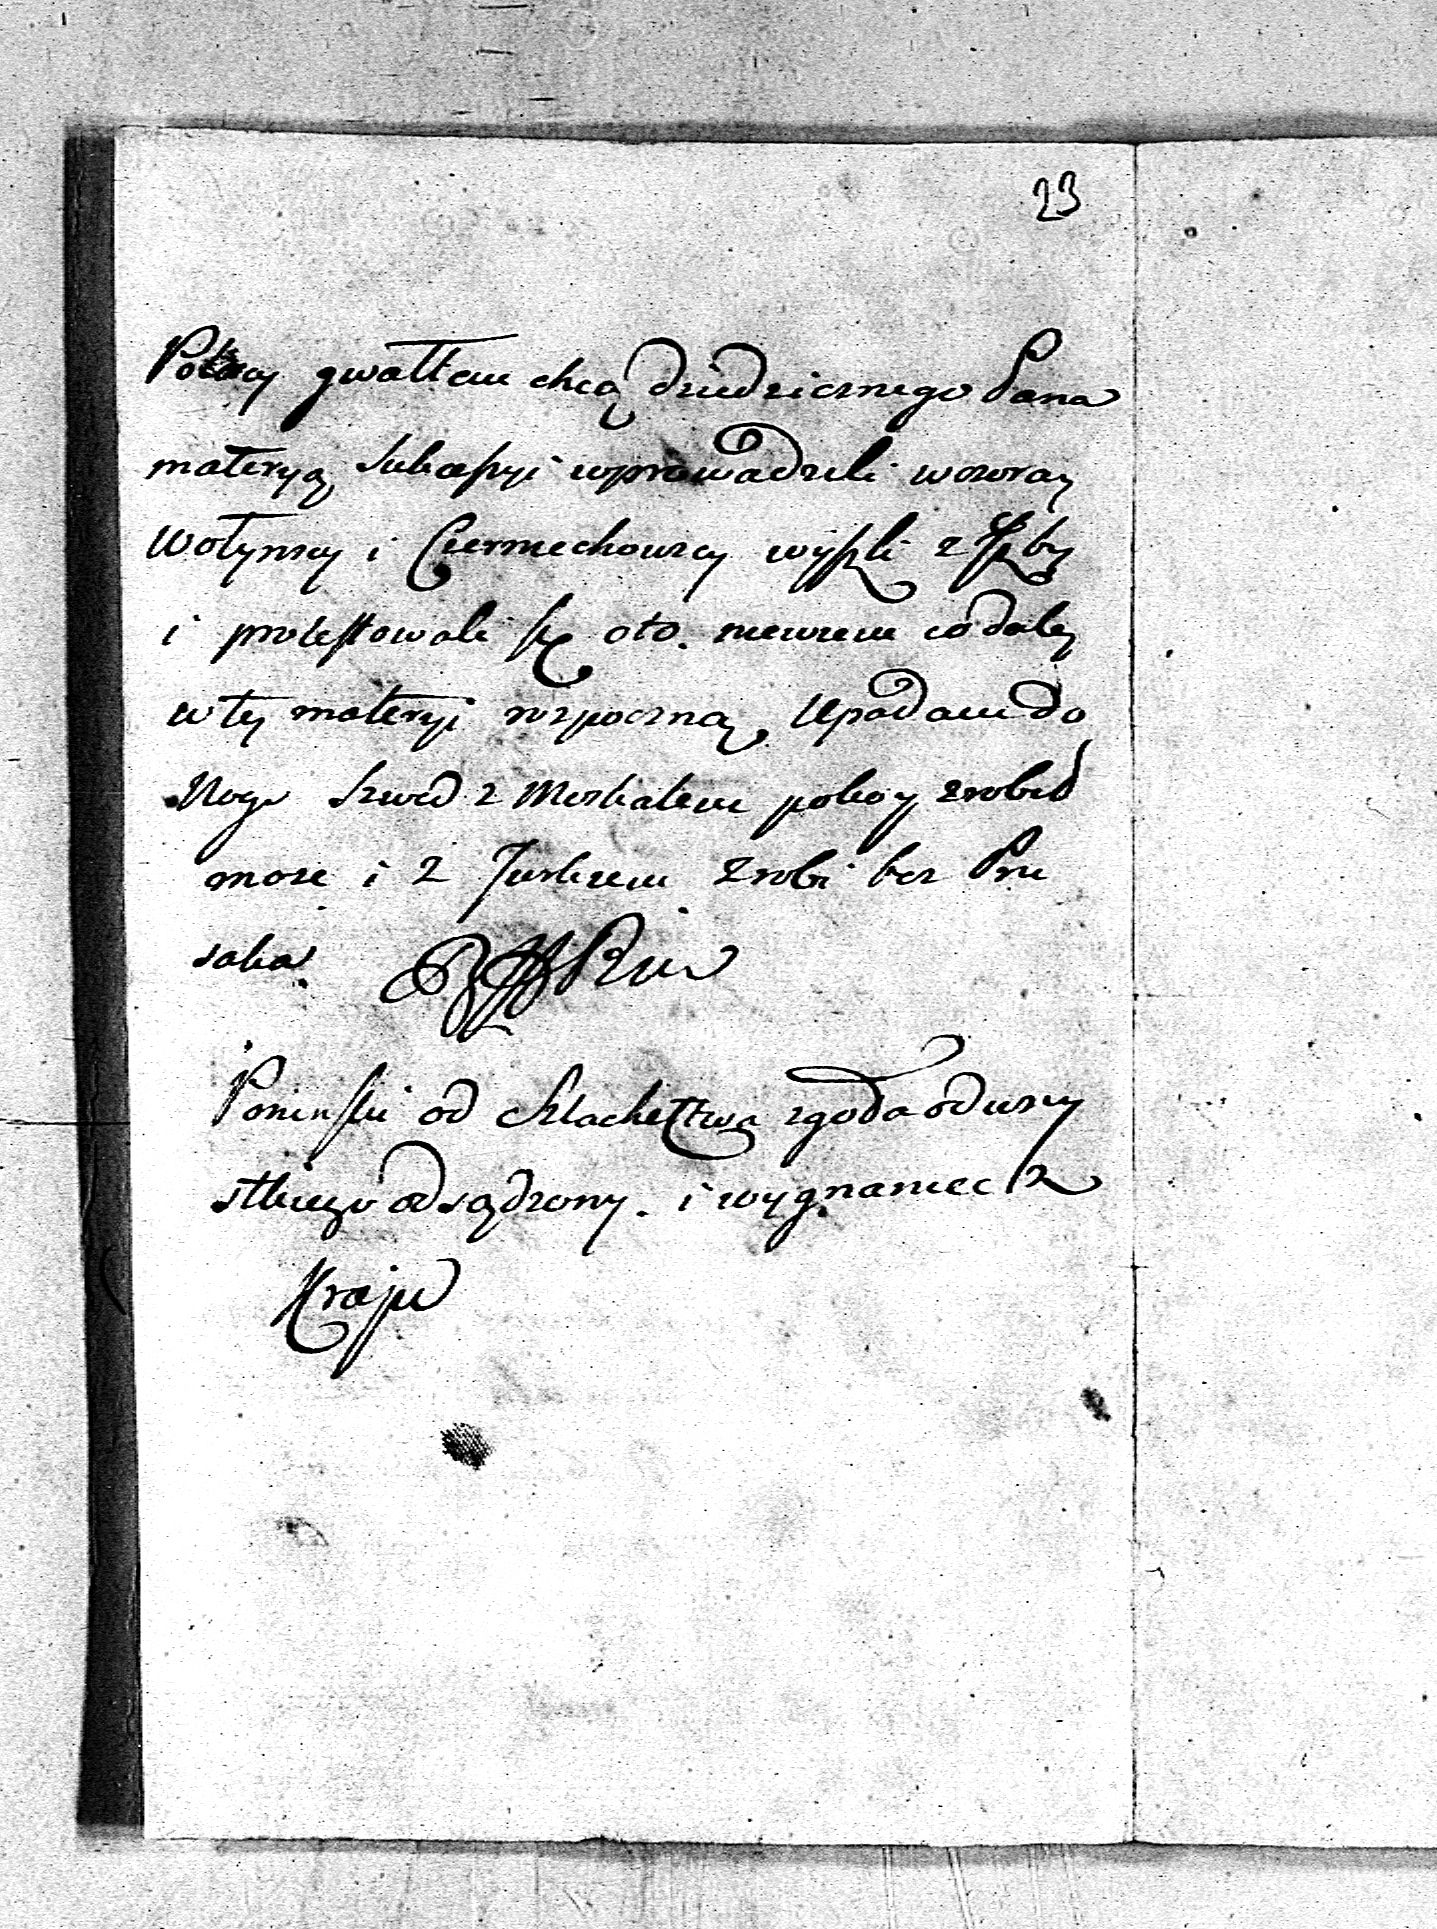 23
Polacy gwałtem chcą dziedzicznego Pana
materyą Sukcessyi wprowadzili wczoray
Wołynscy i Czerniechowscy wyszli z Izby
i protestowali się oto. niewiem co daley
w tey materyi rozpoczną, Upadam do
Nog. Szwed z Moskalem pokoy zrobił
może i z Turkiem zrobi bez Pru
saka.
Poninski od Szlachectwa zgoła od wszy
stkiego odsądzony. i wygnaniec z
Kraju